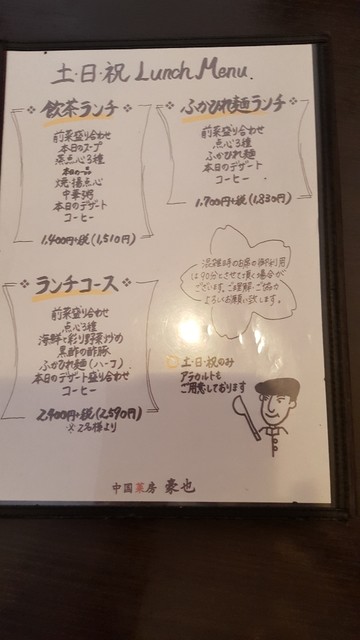 土・日・祝 Lunch Menu.
飲茶ランチ
前菜盛り合わせ
本日のスープ
蒸点心3種
焼・揚点心
中華粥
本日のデザート
コーヒー
1,400円+税(1,510円)
ふかひれ麺ランチ
前菜盛り合わせ
点心3種
ふかひれ麺
本日のデザート
コーヒー
1,700円+税(1,830円)
ランチコース
前菜盛り合わせ
点心3種
海鮮と彩り野菜炒め
黒酢の酢豚
ふかひれ麺(ハーフ)
本日のデザート盛り合わせ
コーヒー
2,400円+税(2,590円)
※2名様より
混雑時のお席の御利用
は90分とさせて頂く場合が
ございます。ご理解・ご協力
よろしくお願い致します。
土・日・祝のみ
アラカルトも
ご用意しております
中国菜房 豪也